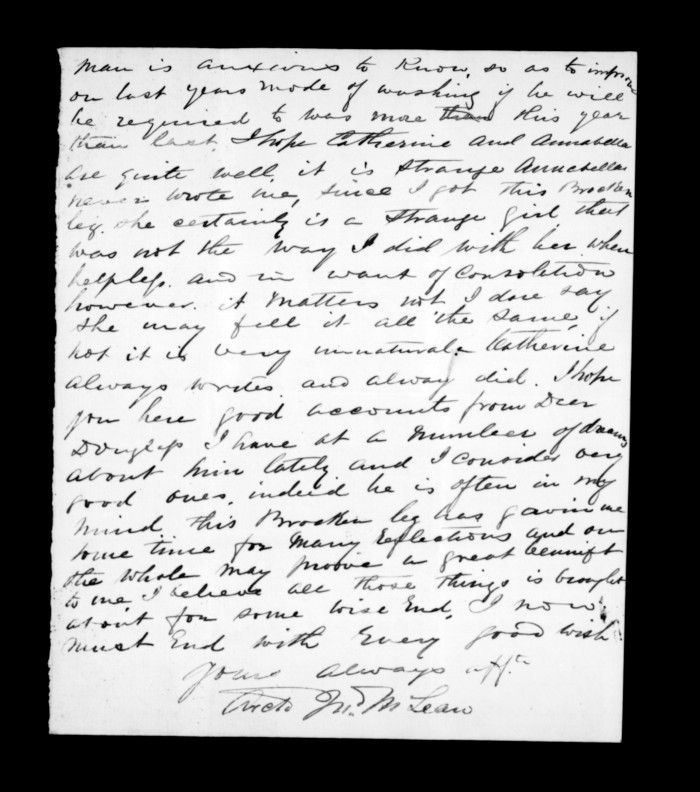 man is anxious to Know, so as to improve
on last years mode of washing if he will
be required to was more than this year
than last. I hope Catherine and Annabella
are quite well it is strange Annabella
never wrote me, since I got this Brocken
leg. she certainly is a strange girl that
was not the way I did with her when
helpless. and in want of Consolition
however. it matters not I dare say
she may fell it all the same, if
not it is very unnatural. Catherine
always writes and alway did. I hope
you here good accounts from Dear
Douglass I have at a number of dreams
about him lately and I consider very
good ones. indeed he is often in my
mind this Brocken leg has gavin me
some time for many Reflections and on
the whole may proove a great bennift
to me I believe all those things is brought
about for some wise End. I now
must End with Every good wish
Yours always afft.
Archd Jno. McLean